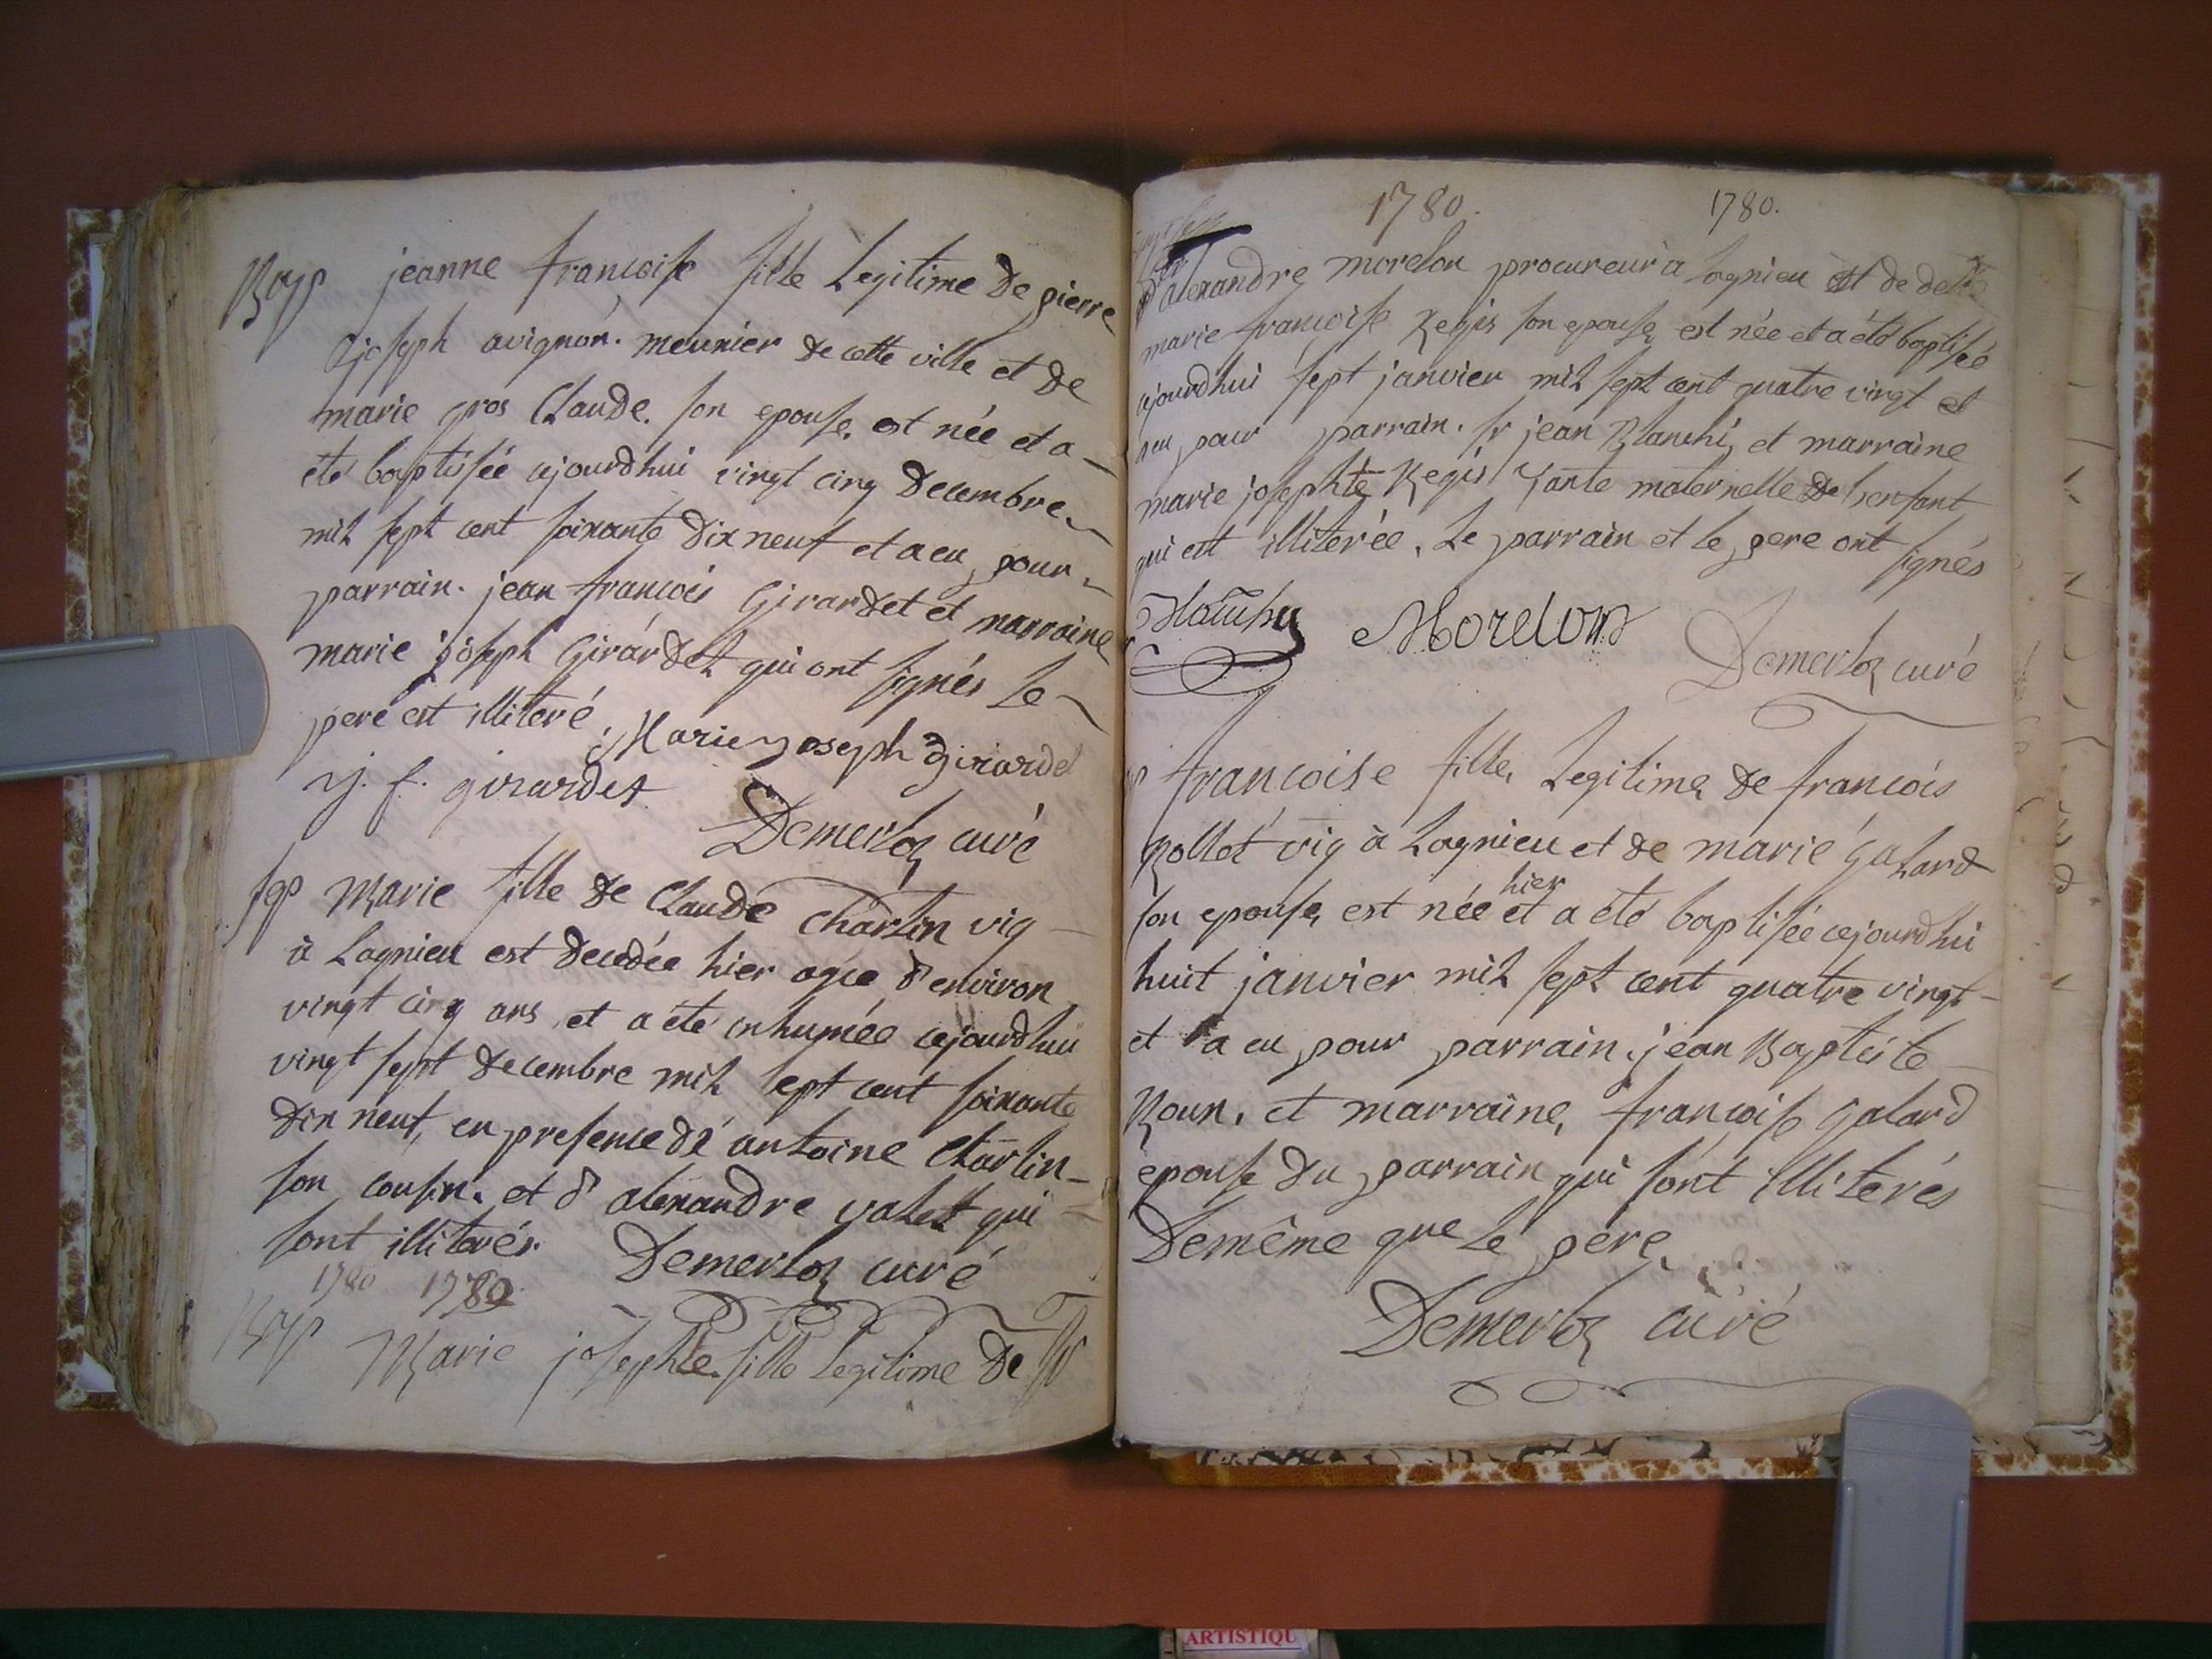 Bap jeanne francoise fille Legitime de pierre
joseph avignon. meunier de cette ville et de
marie gros Claude. son epouse. est née et a
été baptisée cejourdhui vingt cinq decembre
mil sept cent soixante dix neuf et a eu pour
parrain. jean francois Girardet et marraine
marie joseph Girardet qui ont signés Le
pere est illiteré Marie joseph girardet
j. f. girardet
Demerloz curé
sep Marie fille de Claude Charlin vig
à Lagnieu est decedée hier agée d'environ
vingt cinq ans et a été inhumée cejourdhui
vingt sept decembre mil sept cent soixante
dix neuf, en presence de antoine Charlin
son cousin. et d'alexandre valet qui
sont illiterés. Demerloz curé
1780 1780
Bap Marie josephte fille Legitime de sr
1780. 1780.
alexandre morelon procureur à lagnieu et de delle
marie francoise Regis son epouse est née et a été baptisée
cejourdhui sept janvier mil sept cent quatre vingt et
a eu pour parrain. sr jean Blanchi, et marraine
marie josephte Regis Tante maternelle de l'enfant
qui est illiterée. Le parrain et le pere ont signés
Morelon
Demerloz curé
francoise fille Legitime de francois
Rollet vig à Lagnieu et de marie galard
son epouse, est née hier et a été baptisée cejourdhui
huit janvier mil sept cent quatre vingt
et a eu pour parrain. jean Baptiste
Roux. et marraine, francoise galard
epouse du parrain qui sont illiterés
Demême que le pere.
Demerloz curé
ARTISTIQU